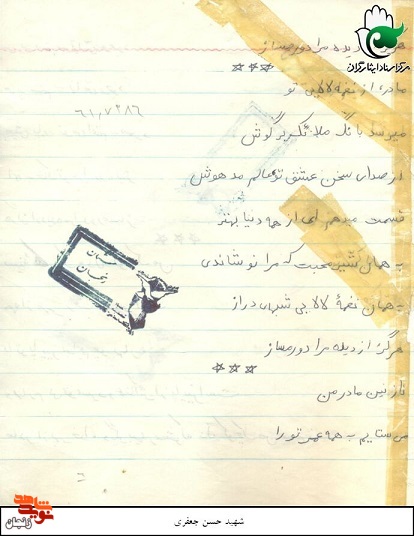 مرکز اسناد ایثارگران
هرگز از دیده مرا دور مساز
***
مادر، از نغمهٔ لالایی تو
۶۱,۷۲۸۶
میرسد بانگ ملائک بر گوش
از صدای سخن عشق تو عالم مدهوش
قسمت میدهم ای از همه دنیا بهتر
به همان شیر محبت که مرا نوشاندی
به همان نغمهٔ لالایی شبهای دراز
هرگز از دیده مرا دور مساز
***
نازنین مادر من
می ستایم به همه عمر تو را
زنجان
نوید شاهد
زنجان
شهید حسن جعفری